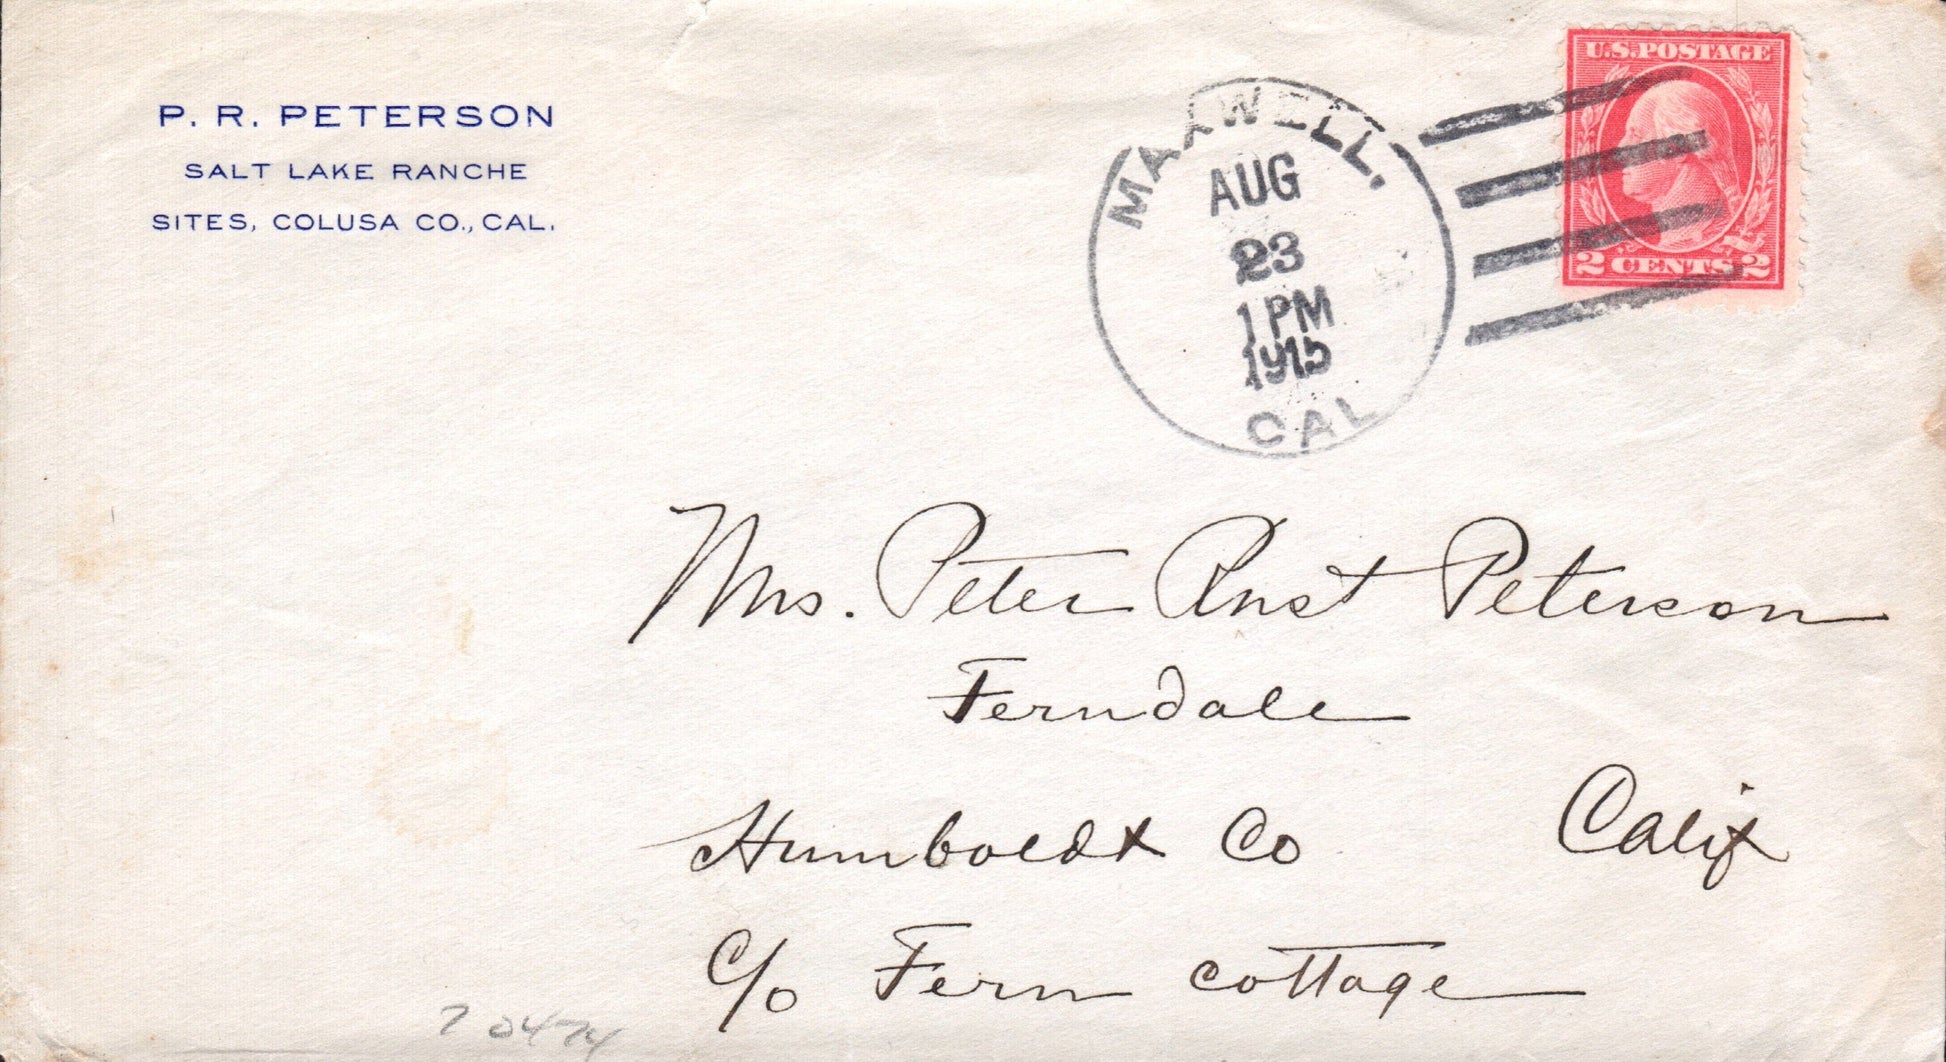 P. R. PETERSON
SALT LAKE RANCHE
SITES, COLUSA CO., CAL.
MAXWELL,
AUG
23
1 PM
1915
CAL
U.S. POSTAGE
2 CENTS 2
Mrs. Peter Rust Peterson
Ferndale
Humboldt Co Calif
c/o Fern cottage